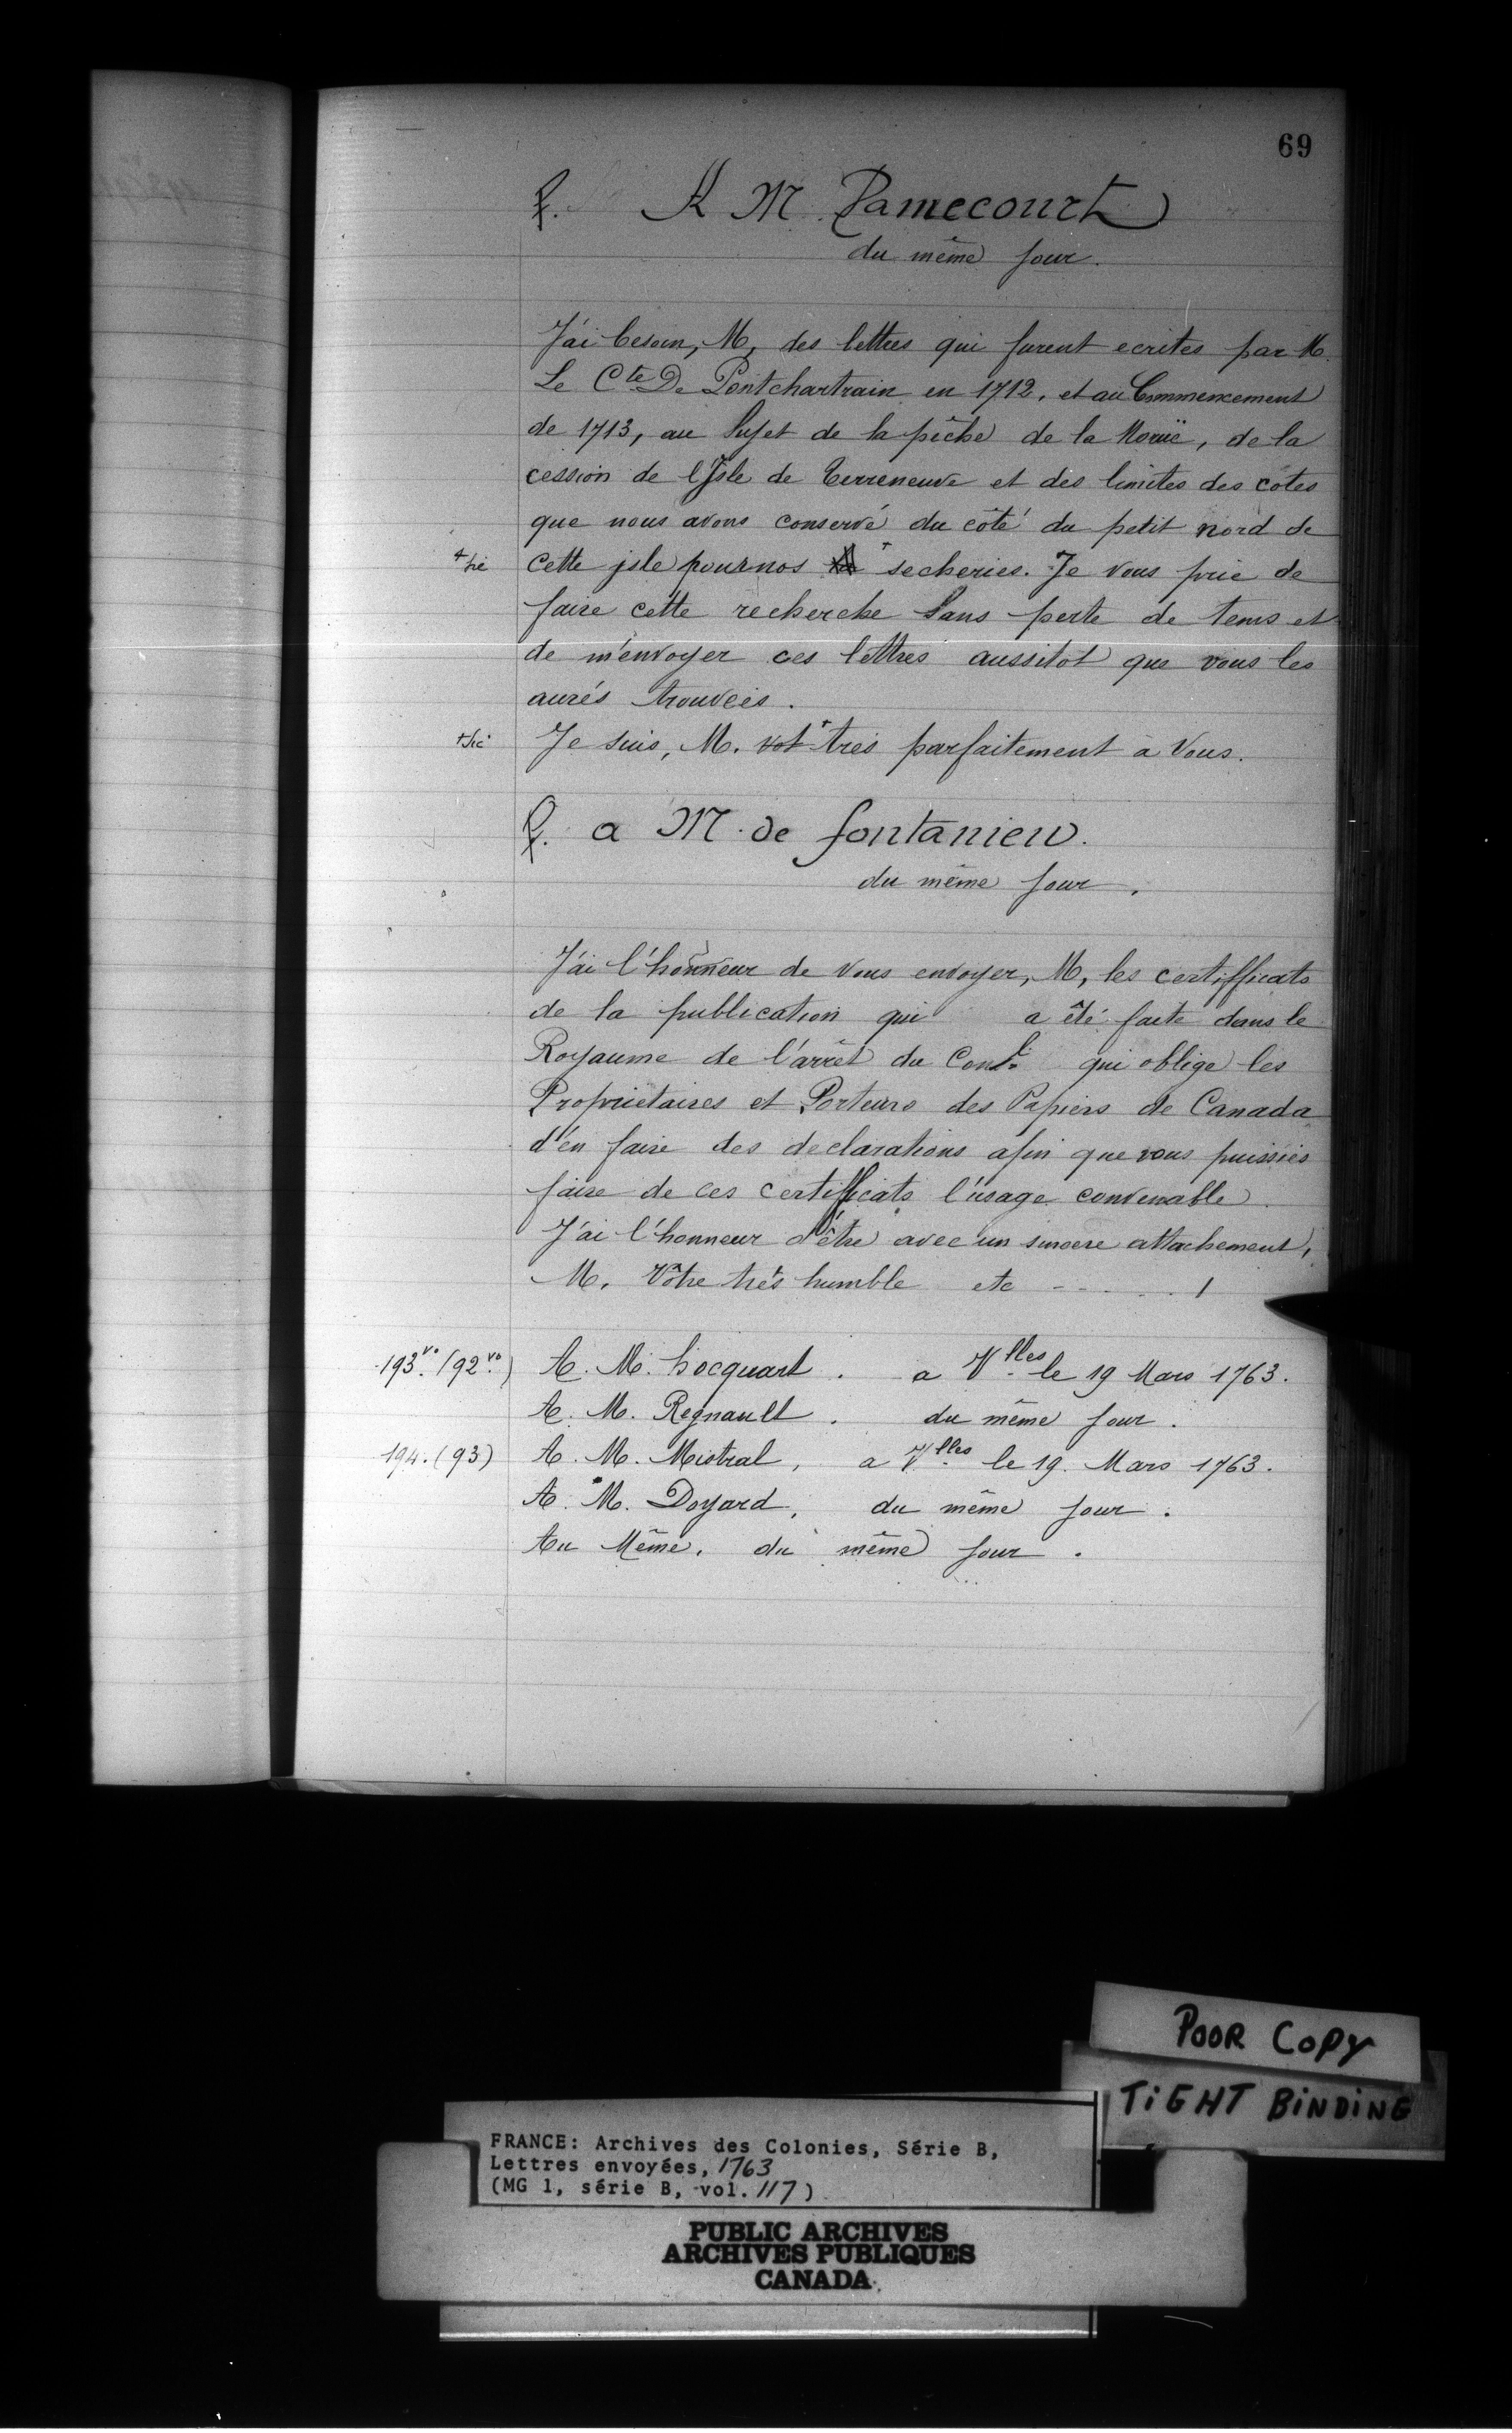 69
A M. Pamecourt
du même jour.
J'ai besoin, M, des lettres qui furent ecrites par M.
Le Cte De Pontchartrain en 1712, et au Commencement
de 1713, au Sujet de la pêche de la Moruë, de la
cession de l'Isle de Terreneuve et des limites des cotes
que nous avons conservé du côté du petit nord de
+ sic cette jsle pour nos + secheries. Je vous prie de
faire cette recherche Sans perte de tems et
de m'envoyer ces lettres aussitot que vous les
aurés trouveés.
+ sic Je suis, M. vot + très parfaitement à Vous.
a M. de fontanieu.
du même jour.
J'ai l'honneur de vous envoyer, M, les certifficats
de la publication qui a été faite dans le
Royaume de l'arrêt du Conl. qui oblige les
Proprietaires et Porteurs des Papiers de Canada
d'en faire des declarations afin que vous puissiés
faire de ces certifficats l'usage convenable.
J'ai l'honneur d'être avec un sincere attachement,
M. Vôtre très humble etc - - - - - /
193vo. (92vo.) A. M. hocquart. a Vlles le 19 Mars 1763.
A. M. Regnault. du même jour.
194. (93) A. M. Mistral, a Vlles le 19. Mars 1763.
A. M. Doyard, du même jour.
Au Même. du même jour.
POOR COPY
TIGHT BINDING
FRANCE: Archives des Colonies, Série B,
Lettres envoyées, 1763
(MG 1, série B, vol. 117)
PUBLIC ARCHIVES
ARCHIVES PUBLIQUES
CANADA